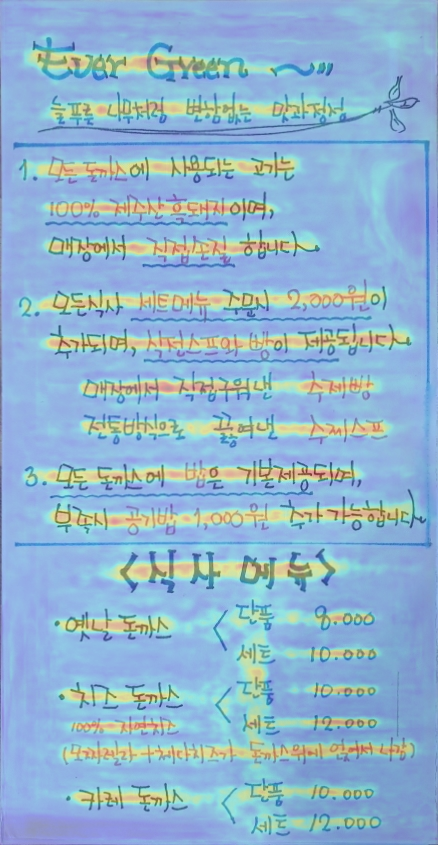 Ever Green
늘푸른 나무처럼 변함없는 맛과정성
1. 모든 돈까스에 사용되는 고기는
100% 제주산 흑돼지이며,
매장에서 직접손질 합니다.
2. 모든식사 세트메뉴 주문시 2,000원이
추가되며, 식전스프와 빵이 제공됩니다.
매장에서 직접구워낸 수제빵
전통방식으로 끓여낸 수제스프
3. 모든 돈까스에 밥은 기본제공되며,
부족시 공기밥 1,000원 추가 가능합니다.
<식사 메뉴>
· 옛날 돈까스 < 단품 8.000
세트 10.000
· 치즈 돈까스 < 단품 10.000
100% 자연치즈 세트 12.000
(모짜렐라 + 체다치즈가 돈까스위에 얹어서 나감)
· 카레 돈까스 < 단품 10.000
세트 12.000